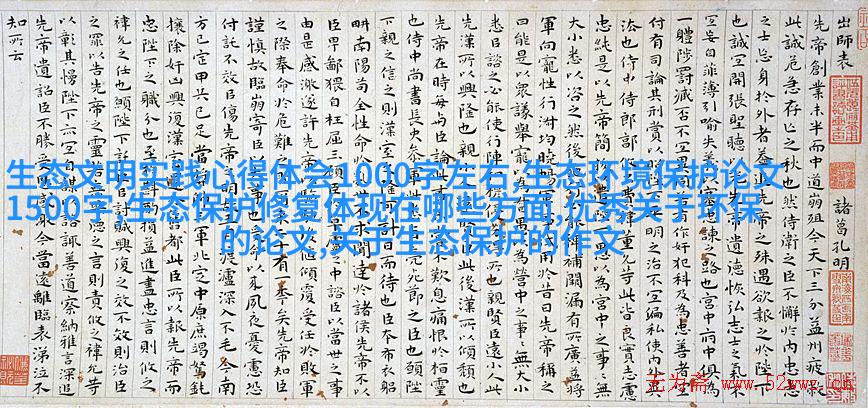 生态文明实践心得体会1000字左右,生态环境保护论文
1500字,生态保护修复体现在哪些方面,优秀关于环保
的论文,关于生态保护的作文
出師表 諸葛孔明
先帝創業未半而中道崩殂今天下三分益州疲敝
此誠危急存亡之秋也然侍衛之臣不懈於內忠志
之士忘身於外者蓋追先帝之殊遇欲報之於陛下
也誠宜開張聖聽以光先帝遺德恢弘志士之氣不
宜妄自菲薄引喻失義以塞忠諫之路也宮中府中俱為
一體陟罰臧否不宜異同若有作奸犯科及為忠善者宜
付有司論其刑賞以昭陛下平明之治不宜偏私使內外異
法也侍中侍郎郭攸之費禕董允等此皆良實志慮
忠純是以先帝簡拔以遺陛下愚以為宮中之事事無
大小悉以咨之然後施行必能裨補闕漏有所廣益將
軍向寵性行淑均曉暢軍事試用於昔日先帝稱之
曰能是以眾議舉寵為督愚以為營中之事事無大小
悉以咨之必能使行陣和睦優劣得所也親賢臣遠小人此
先漢所以興隆也親小人遠賢臣此後漢所以傾頹也
先帝在時每與臣論此事未嘗不歎息痛恨於桓靈
也侍中尚書長史參軍此悉貞亮死節之臣也願陛
下親之信之則漢室之隆可計日而待也臣本布衣躬
耕南陽苟全性命於亂世不求聞達於諸侯先帝不以
臣卑鄙猥自枉屈三顧臣於草廬之中諮臣以當世之事
由是感激遂許先帝以驅馳後值傾覆受任於敗軍
之際奉命於危難之間爾來二十有一年矣先帝知臣
謹慎故臨崩寄臣以大事也受命以來夙夜憂慮恐
付託不效以傷先帝之明故五月渡瀘深入不毛今南
方已定甲兵已足當獎率三軍北定中原庶竭駑鈍
攘除奸凶興復漢室還于舊都此臣所以報先帝而
忠陛下之職分也至於斟酌損益進盡忠言則攸之
禕允之任也願陛下託臣以討賊興復之效不效則治臣
之罪以告先帝之靈若無興德之言則責攸之禕允等
以彰其慢陛下亦宜自謀以諮諏善道察納雅言深追
先帝遺詔臣不勝受恩感激今當遠離臨表涕泣不
知所云
无为斋 www.52wwz.cn